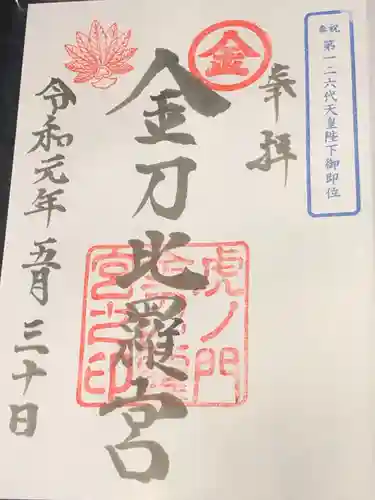 奉祝 第一二六代天皇陛下御即位
奉拝
金
金刀比羅宮
虎ノ門
金刀比羅
宮之印
令和元年 五月 三十日